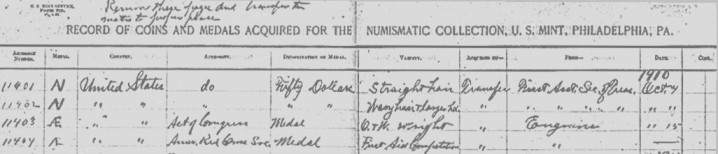 U. S. MINT SERVICE,
Remove these pages and transfer the
matter to proper place
RECORD OF COINS AND MEDALS ACQUIRED FOR THE NUMISMATIC COLLECTION, U. S. MINT, PHILADELPHIA, PA.
ACCESSION NUMBER. METAL. COUNTRY. AUTHORITY. DENOMINATION OR MEDAL. VARIETY. ACQUIRED BY— FROM— DATE. COST.
1910
11401 N United States do Fifty Dollars Straight hair Transfer Oct 4
11402 N " " " " " Wavy hair " " " "
11403 Æ " " Act of Congress Medal O. & W. Wright " Engraver " 15
11404 Æ " " Amer. Red Cross Soc. Medal First Aid Competition " " " "